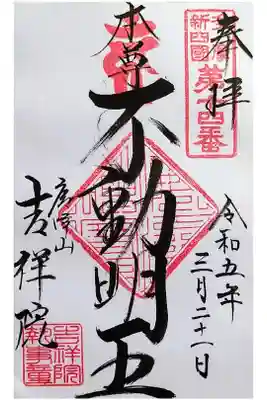 奉拝
新四國
第十四番
本尊
不動明王
令和五年
三月二十一日
吉祥院
吉祥院
執事章